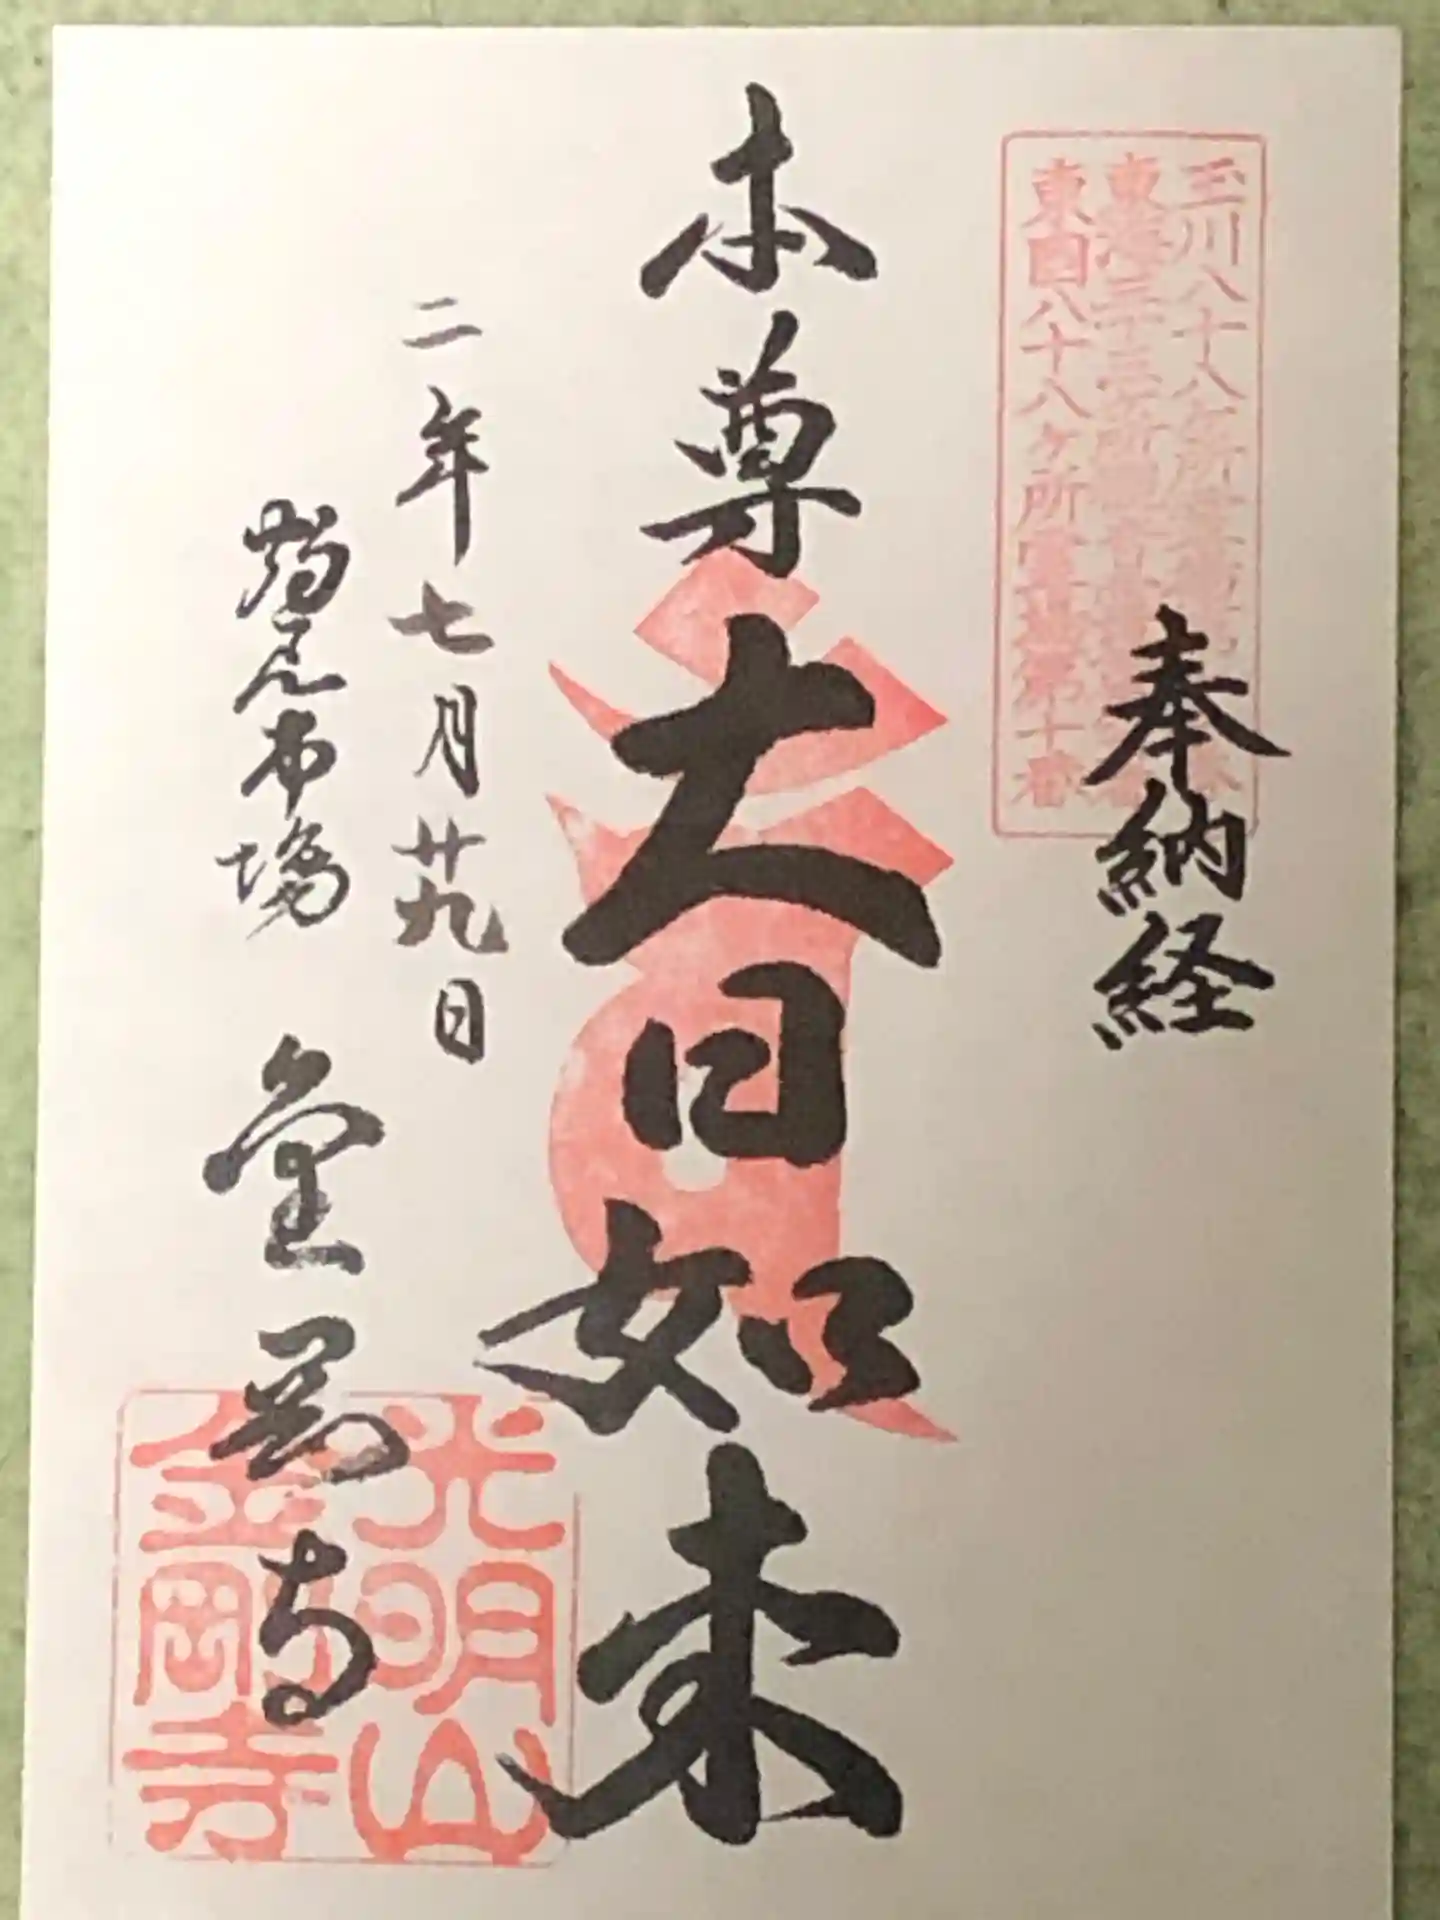 玉川八十八ケ所
東海三十三ケ所
東国八十八ケ所霊場第十番
奉納経
本尊大日如来
二年七月廿九日
鶴見市場
金剛寺
光明山
金剛寺